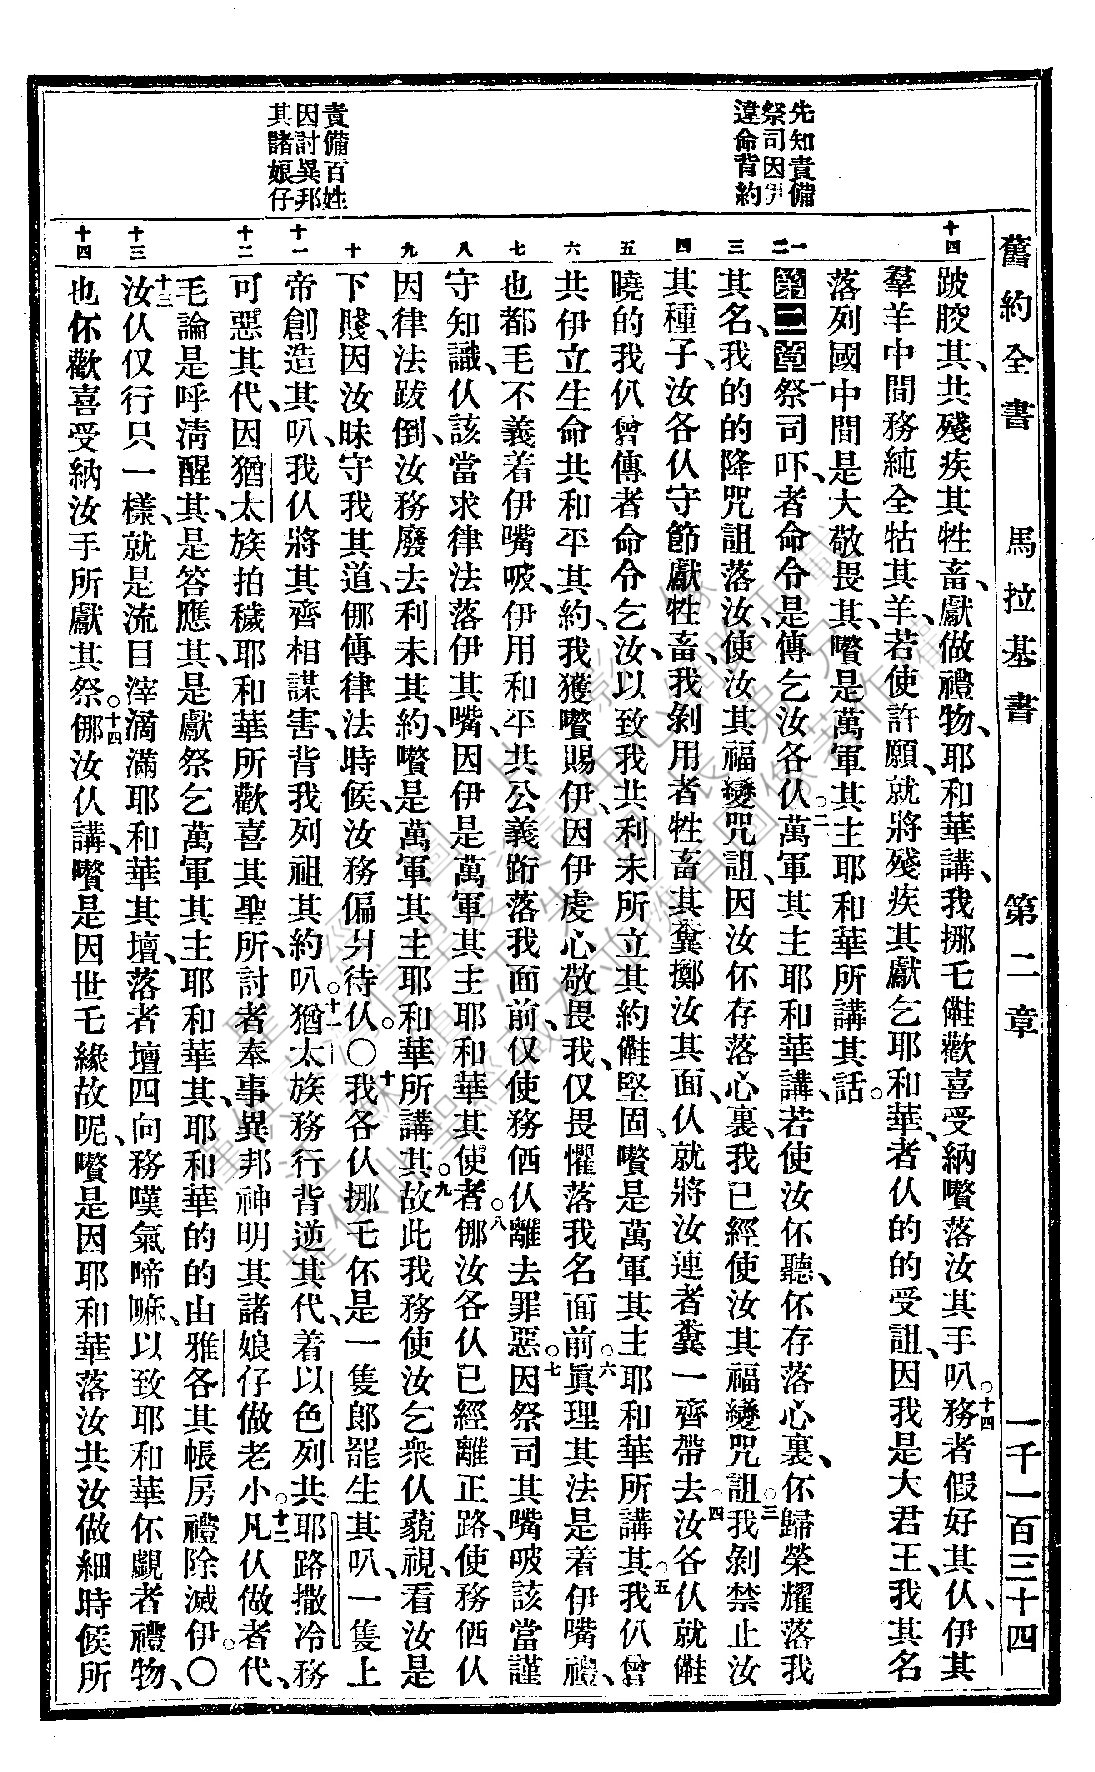 舊約全書　馬拉基書　第二章　一千一百三十四
先知責備
祭司因尹
違命背約
責備百姓
因討異邦
其諸娘仔
十四
跛腔其、共殘疾其牲畜、獻做禮物、耶和華講、我挪乇𣍐歡喜受納嚽落汝其手叭。十四務者假好其仈、伊其
羣羊中間務純全牯其羊、若使許願、就將殘疾其獻乞耶和華者仈的的受詛、因我是大君王、我其名
落列國中間是大敬畏其、嚽是萬軍其主耶和華所講其話。
一 二
第二章 一祭司吓、者命令是傳乞汝各仈。二萬軍其主耶和華講、若使汝伓聽、伓存落心裏、伓歸榮耀落我
三
其名、我的的降咒詛落汝、使汝其福變咒詛、因汝伓存落心裏、我已經使汝其福變咒詛。三我剝禁止汝
四
其種子、汝各仈守節獻牲畜、我剝用者牲畜其糞擲汝其面、仈就將汝連者糞一齊帶去。四汝各仈就𣍐
五
曉的我仈曾傳者命令乞汝、以致我共利未所立其約𣍐堅固、嚽是萬軍其主耶和華所講其。五我仈曾
六
共伊立生命共和平其約、我獲嚽賜伊、因伊虔心敬畏我、仅畏懼落我名面前。六眞理其法是着伊嘴禮、
七
也都毛不義着伊嘴㕭、伊用和平共公義跲落我面前、仅使務価仈離去罪惡。七因祭司其嘴㕭該當謹
八
守知識、仈該當求律法落伊其嘴、因伊是萬軍其主耶和華其使者。八挪汝各仈已經離正路、使務価仈
九
因律法跋倒、汝務廢去利未其約、嚽是萬軍其主耶和華所講其。九故此我務使汝乞衆仈藐視、看汝是
十
下賤、因汝昧守我其道、挪傳律法時候、汝務偏爿待仈。〇十我各仈挪乇伓是一隻郞罷生其叭、一隻上
十一
帝創造其叭、我仈將其齊相謀害、背我列祖其約叭。十一猶太族務行背逆其代、着以色列共耶路撒冷務
十二
可惡其代、因猶太族拍穢耶和華所歡喜其聖所、討者奉事異邦神明其諸娘仔做老小。十二凡仈做者代、
毛論是呼淸醒其、是答應其、是獻祭乞萬軍其主耶和華其、耶和華的的由雅各其帳房禮除滅伊。〇
十三
十三汝仈仅行只一樣、就是流目滓滴滿耶和華其壇、落者壇四向務嘆氣啼嘛、以致耶和華伓覷者禮物、
十四
也伓歡喜受納汝手所獻其祭。十四挪汝仈講、嚽是因世乇緣故呢、嚽是因耶和華落汝共汝做細時候所